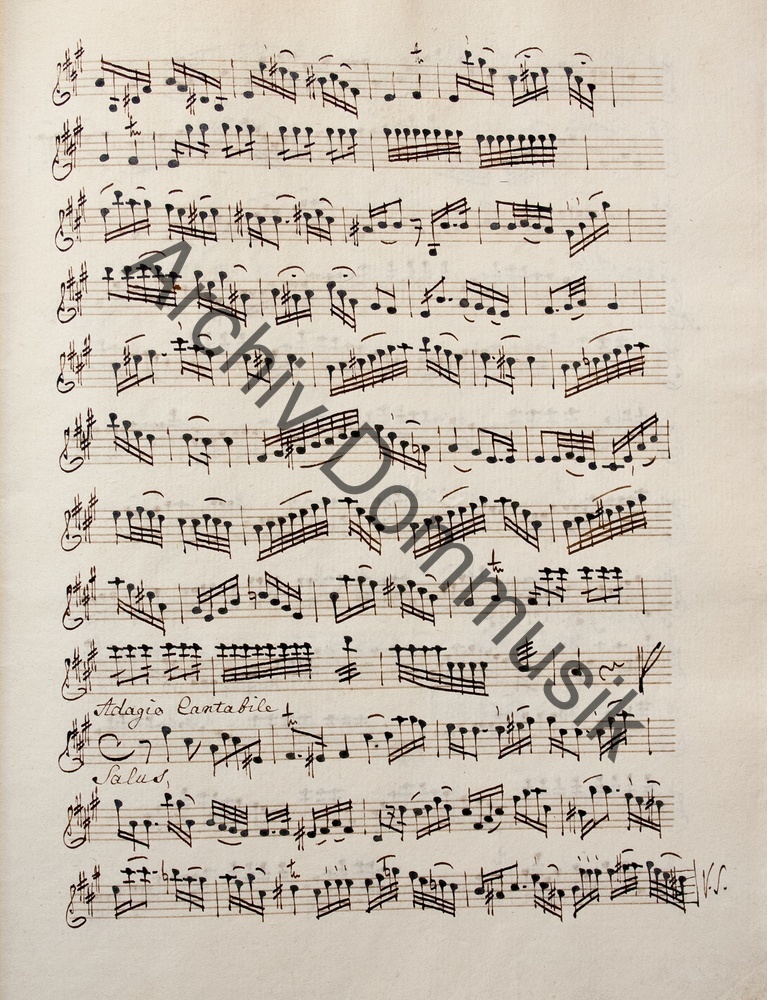 Adagio Cantabile
Salus,
V.S.
Archiv Dommusik